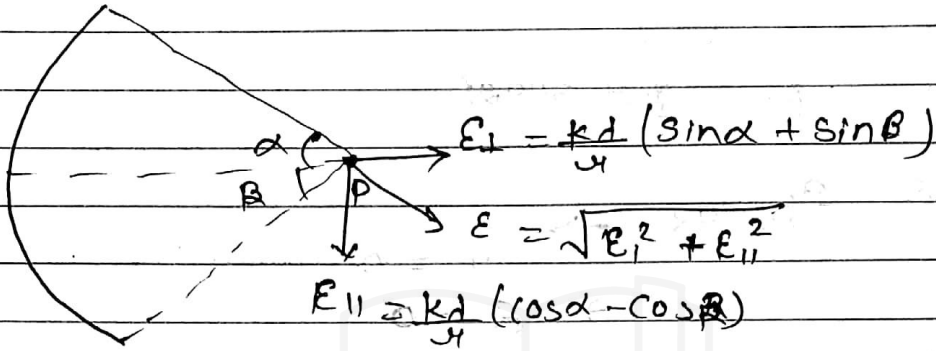 α
β
P
E⊥ = kd/r (sinα + sinβ)
E = √E⊥² + E||²
E|| = kd/r (cosα - cosβ)